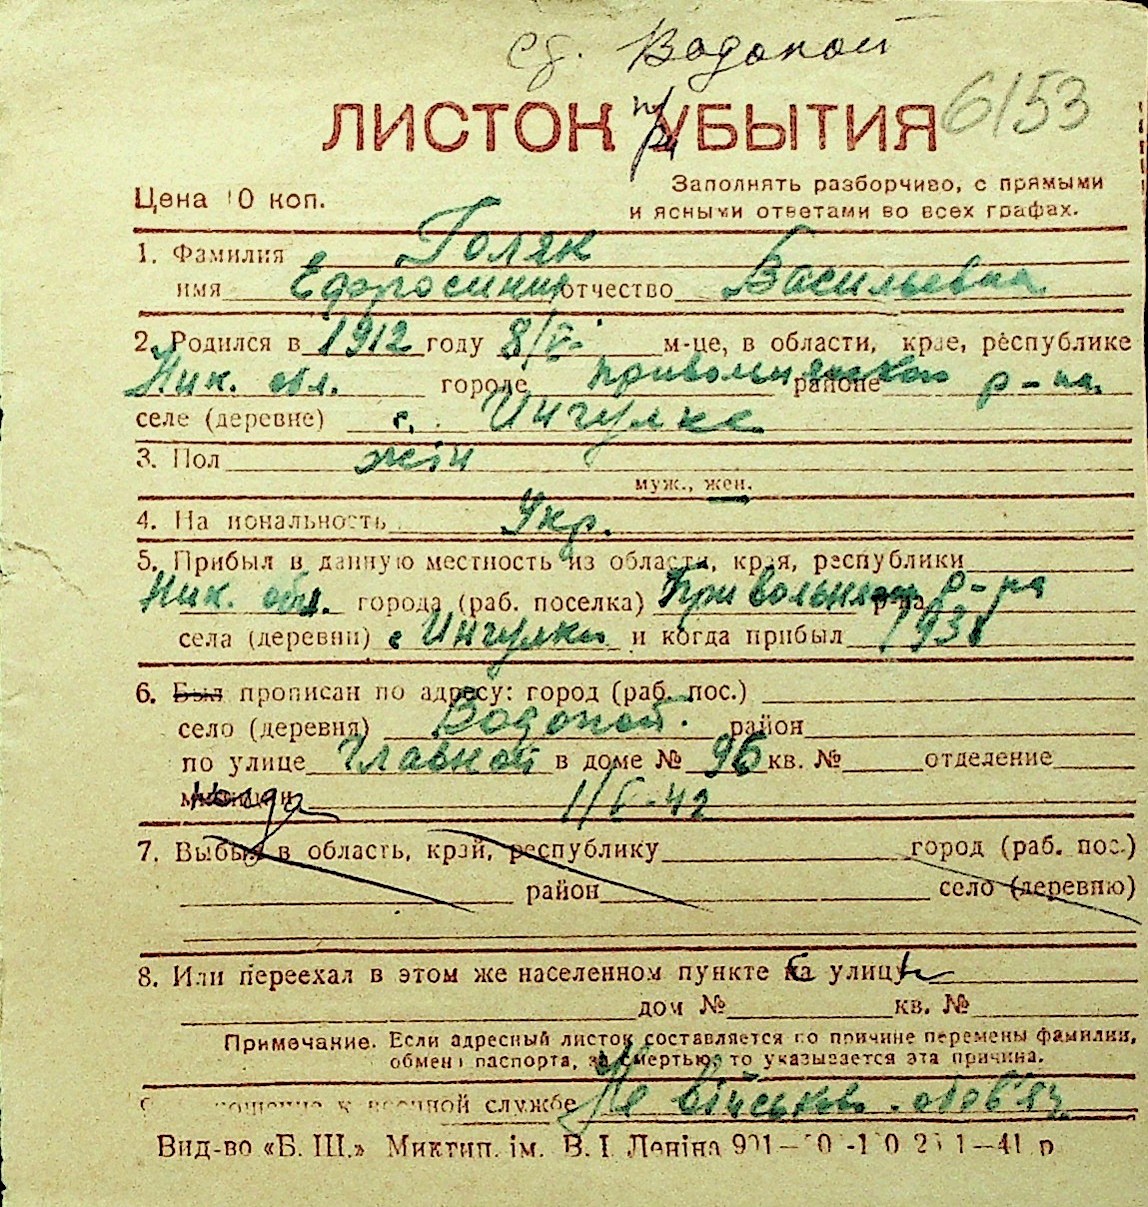 ст. Водопой
ЛИСТОК УБЫТИЯ 6/53
пр
Цена 10 коп.
Заполнять разборчиво, с прямыми
и ясными ответами во всех графах.
1. Фамилия Голяк
имя Ефросиния отчество Васильевна
2. Родился в 1912 году 8/V- м-це, в области, крае, республике
Ник. обл. городе Привольнянском районе р-на.
селе (деревне) с. Ингулке
3. Пол жін
муж., жен.
4. Национальность Укр.
5. Прибыл в данную местность из области, края, республики
Ник. обл. города (раб. поселка) Привольнян р-на р-на
села (деревни) с Ингулки и когда прибыл 1938
6. Был прописан по адресу: город (раб. пос.)
село (деревня) Водопой. район
по улице Главной в доме № 96 кв. № отделение
милиции когда 1/V-42
7. Выбыл в область, край, республику город (раб. пос.)
район село (деревню)
8. Или переехал в этом же населенном пункте на улицу
дом № кв. №
Примечание. Если адресный листок составляется по причине перемены фамилии,
обмена паспорта, за смертью, то указывается эта причина.
9. Отношение к военной службе Не військов. обов'яз.
Вид-во «Б. Ш.» Миктип. ім. В. І. Леніна 901— 41 р